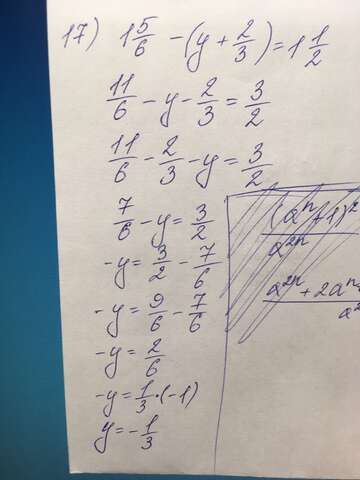 17) 1 5/6 - (y + 2/3) = 1 1/2
11/6 - y - 2/3 = 3/2
11/6 - 2/3 - y = 3/2
7/6 - y = 3/2
-y = 3/2 - 7/6
-y = 9/6 - 7/6
-y = 2/6
-y = 1/3 · (-1)
y = -1/3
(aⁿ+1)²
a²ⁿ
a²ⁿ + 2aⁿ